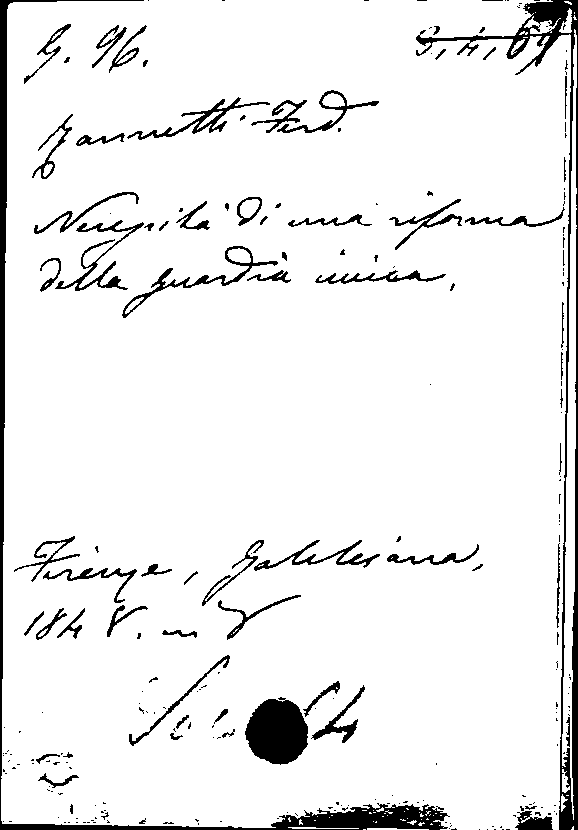 G. 96.
3, 4, 69
Zannetti Ferd.
Necessità di una riforma
della guardia civica.
Firenze, Galileiana,
1848. in 8